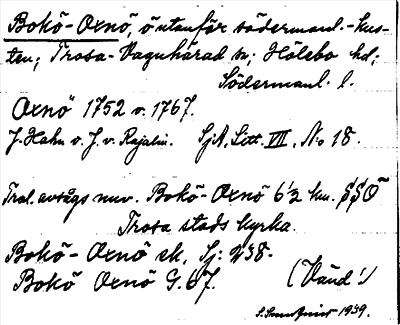 Bokö-Oxnö, ö utanför södermanl.-kus-
ten; Trosa-Vagnhärad sn; Hölebo hd;
Södermanl. l.
Oxnö 1752 o. 1767.
J. Hahn o. J. v. Rajalin. SjA, Litt. VIII, No 18.
Tral. avtågs nuv. Bokö-Oxnö 6 1/2 km. SSO
Trosa stads kyrka.
Bokö-Oxnö ek. Sj: 238.
Bokö Oxnö G. 67. (Vänd!)
1939.